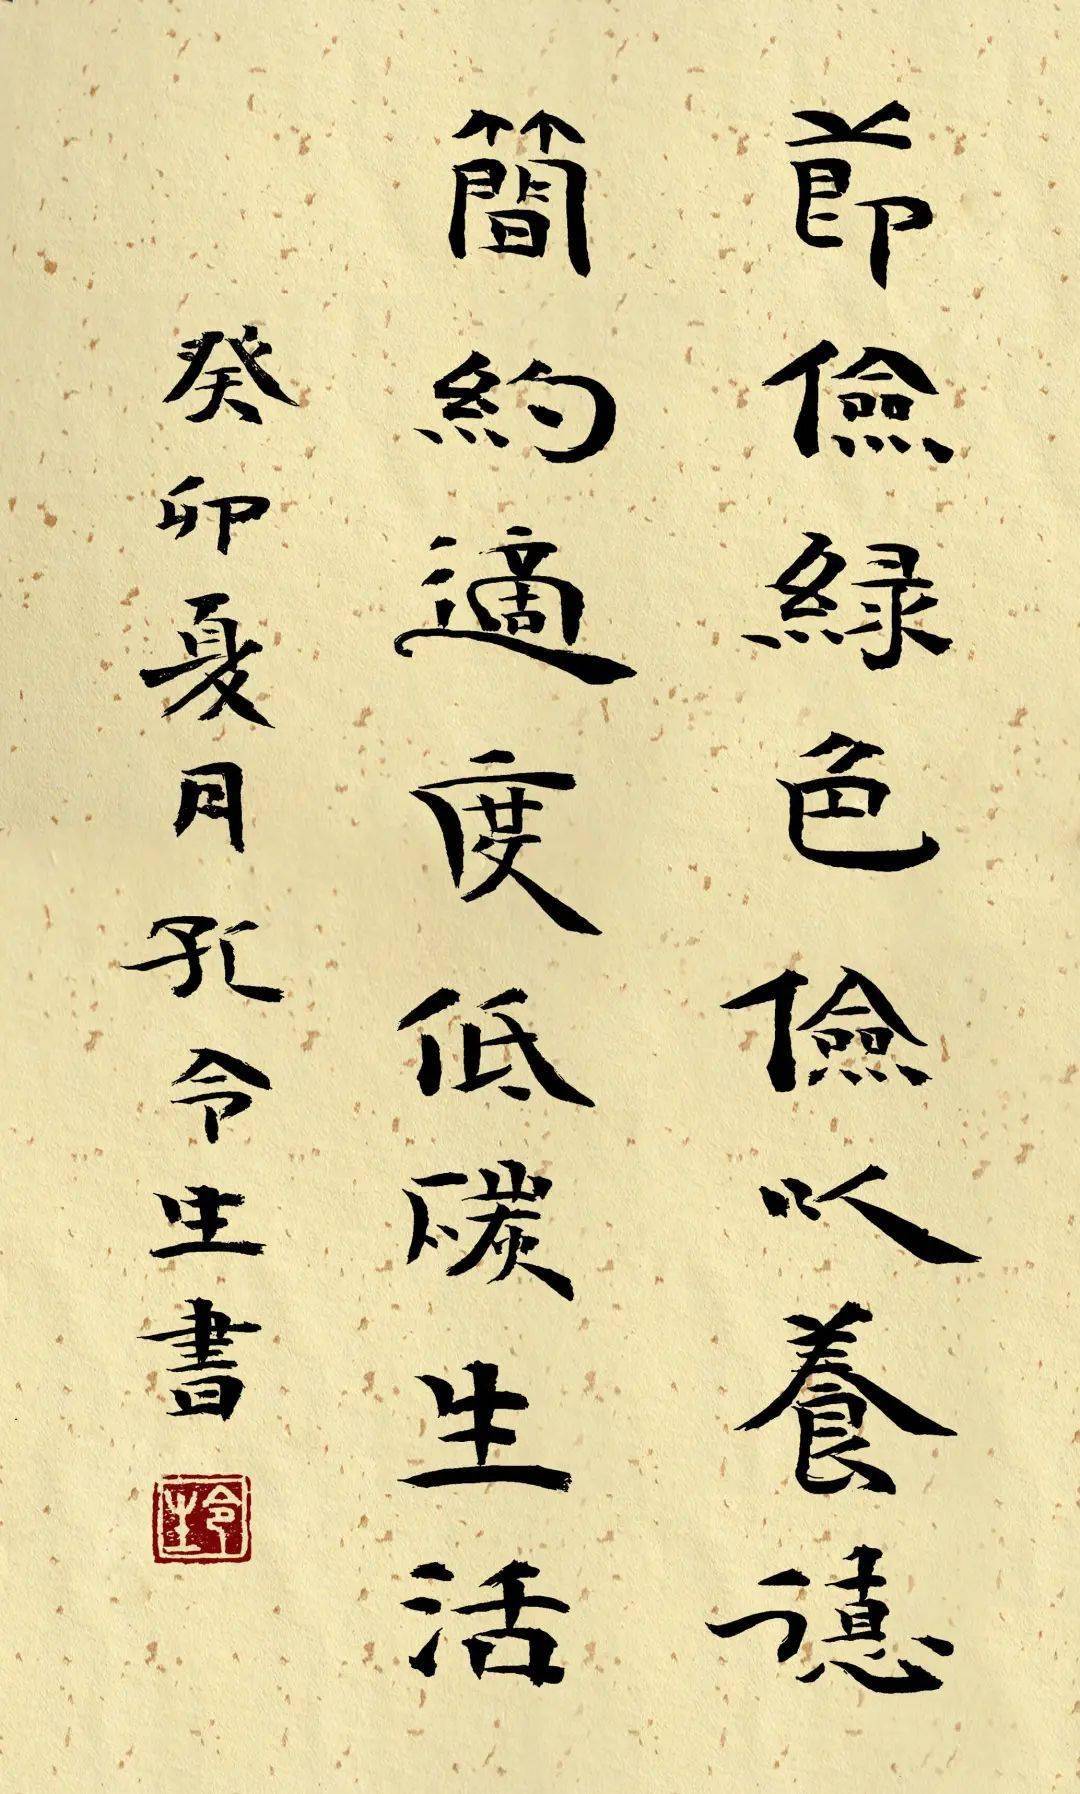 節儉緑色儉以養德
簡約適度低碳生活
癸卯夏月孔令生書
令生